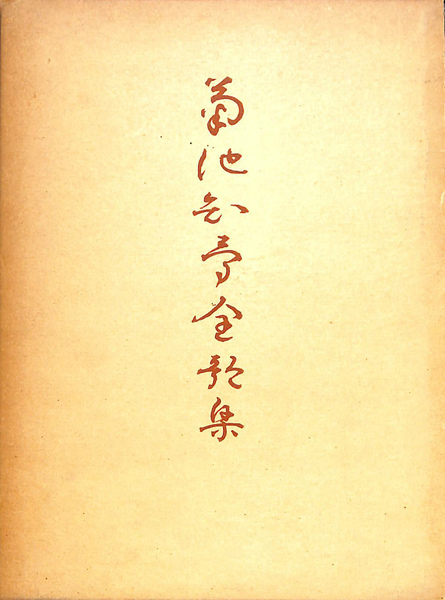 菊池知勇全歌集